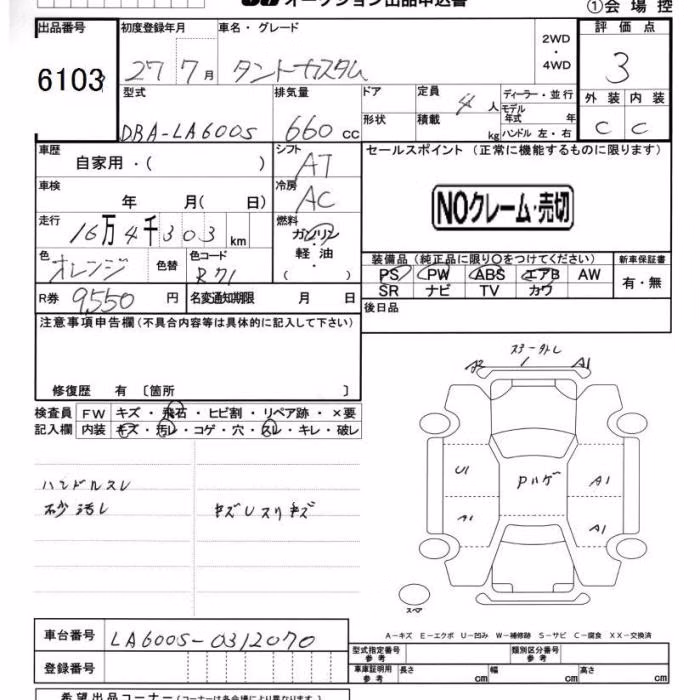 オークション出品申込書
①会場控
出品番号 初度登録年月 車名・グレード 評価点
6103 27 7月 タントカスタム 2WD ・ 4WD 3
型式 排気量 ドア 定員 4人 ディーラー・並行 外装 内装
モデル年式 年
DBA-LA600S 660cc 形状 積載 kg ハンドル 左・右 C C
車歴 シフト セールスポイント (正常に機能するものに限ります)
自家用・( ) AT
車検 冷房
年 月( 日) AC NOクレーム・売切
走行 燃料
16万4千303km ガソリン
・
軽油
・
( )
色 オレンジ 色替 色コード R71
装備品 (純正品に限り○をつけてください) 新車保証書
PS PW ABS エアB AW 有・無
SR ナビ TV カワ
R券 9,550円 名変通知期限 月 日 後日品
注意事項申告欄(不具合内容等は具体的に記入して下さい)
修復歴 有 〔箇所 〕
スチーカトレ
A2 A1
検査員 FW キズ・飛石・ヒビ割・リペア跡・×要
記入欄 内装 キズ・汚レ・コゲ・穴・スレ・キレ・破レ
U1 Pハゲ A1
ハンドルスレ
砂汚レ キズUスリキズ
A1 A1
スペア
A-キズ E-エクボ U-凹み W-補修跡 S-サビ C-腐食 XX-交換済
車台番号 LA600S-0312070
型式指定番号 参考 類別区分番号 参考
登録番号
車庫証明用 参考 長さ cm 幅 cm 高さ cm
希望出品コーナー(コーナーは各会場により異なります。)